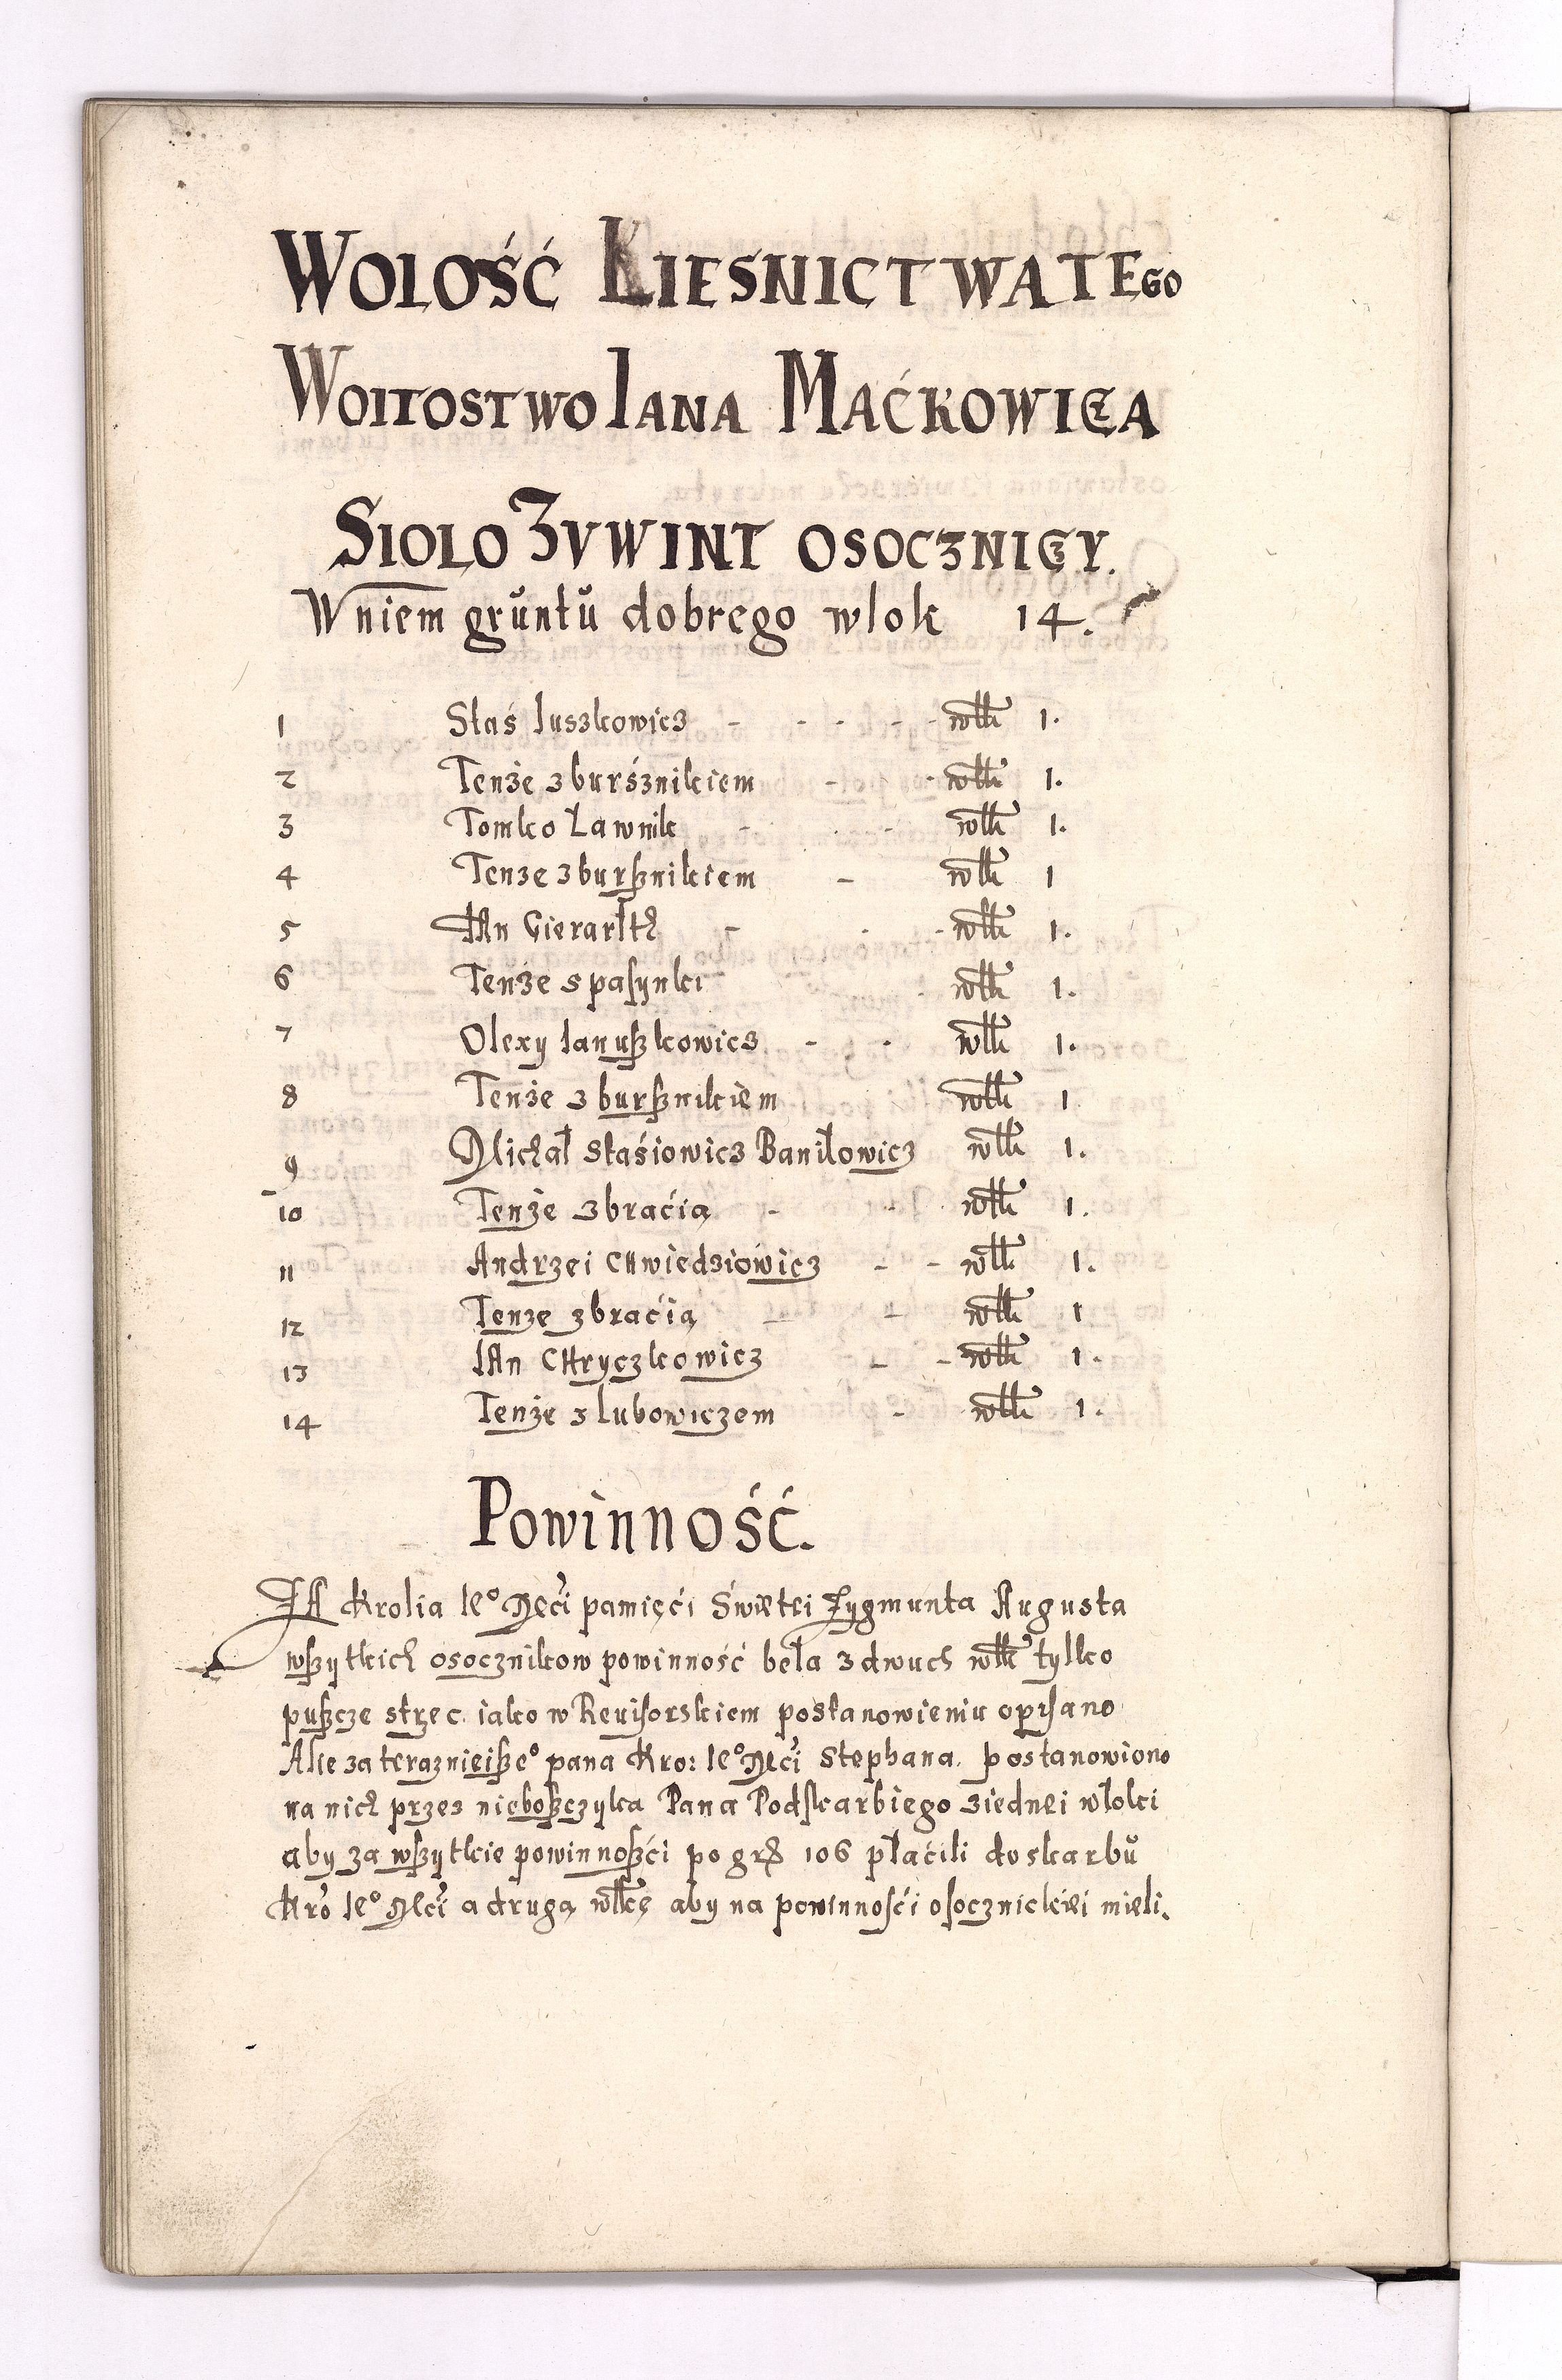 WOLOŚĆ LIESNICTWA TEGO
WOITOSTWO IANA MAĆKOWICZA
SIOLO ZVWINT OSOCZNICZY.
W niem gruntu dobrego wlok 14.
1 Staś Iuszkowicz - - - - - włk 1.
2 Tenże z burśznikiem - - włk 1.
3 Tomko Ławnik - - - włk 1.
4 Tenze z burßnikiem - włk 1
5 IAn Gierarltt - - - włk 1.
6 Tenże s pasynki - włk 1.
7 Olexy Ianußkowicz - - włk 1.
8 Tenże z burßnikiem włk 1
9 Michał Staśiowicz Baniłowicz włk 1.
10 Tenże z braćią - - włk 1.
11 Andrzei CHwiedziowicz - - włk 1.
12 Tenze z braćią - - włk 1
13 IAn CHryczkowicz - - włk 1.
14 Tenże s lubowiczem - włk 1.
POWINNOŚĆ.
ZA Krolia Ieº Mći pamięći Świętei Zygmunta Augusta
wßytkich osocznikow powinność beła z dwuch włk tylko
pußcze strzec iako w Reuisorskiem postanowieniu opisano
Alie za teraznieißeº pana Kro: Ieº Mći Stephana postanowiono
na nich przes nieboßczyka Pana Podskarbiego z iednei włoki
aby za wßytkie powinnoßći po gr 106 płaćili do skarbu
Kró Ieº Mći a drugą włkę aby na powinnośći osocznickiei mieli.